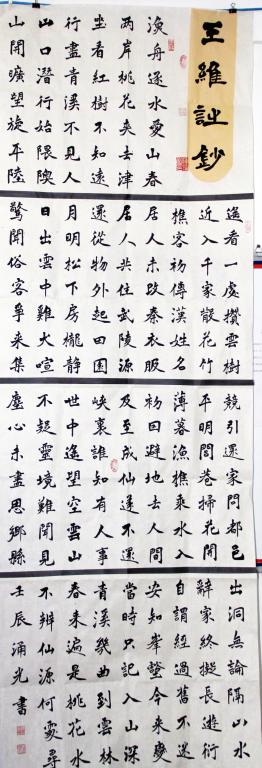 王維詩鈔
漁舟逐水愛山春
兩岸桃花夾去津
坐看紅樹不知遠
行盡青溪不見人
山口潛行始隈隩
山開曠望旋平陸
遙看一處攢雲樹
近入千家散花竹
樵客初傳漢姓名
居人未改秦衣服
居人共住武陵源
還從物外起田園
月明松下房櫳靜
日出雲中雞犬喧
驚聞俗客爭來集
競引還家問都邑
平明閭巷掃花開
薄暮漁樵乘水入
初因避地去人間
及至成仙遂不還
峽裏誰知有人事
世中遙望空雲山
不疑靈境難聞見
塵心未盡思鄉縣
出洞無論隔山水
辭家終擬長遊衍
自謂經過舊不迷
安知峯壑今來變
當時只記入山深
青溪幾曲到雲林
春來遍是桃花水
不辨仙源何處尋
壬辰涌光書